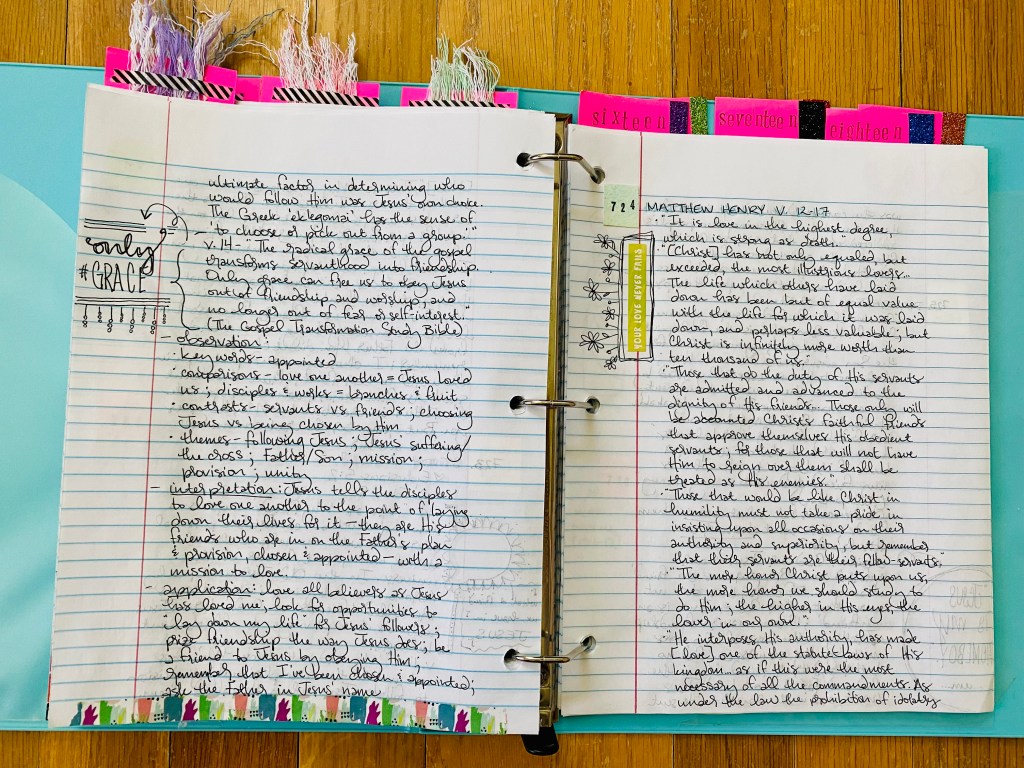 sixteen
seventeen
eighteen
ultimate factor in determining who
would follow Him was Jesus' own choice.
The Greek 'eklegomai' has the sense of
'to choose or pick out from a group.'"
v.14 - "The radical grace of the gospel
transforms servanthood into friendship.
Only grace can free us to obey Jesus
out of friendship and worship, and
no longer out of fear or self-interest."
(The Gospel Transformation Study Bible)
only
#GRACE
- observation:
· key words - appointed
· comparisons - love one another = Jesus loved
us; disciples & works = branches & fruit
· contrasts - servants vs friends; choosing
Jesus vs being chosen by Him
· themes - following Jesus; Jesus' suffering/
the cross; Father/Son; mission;
provision; unity
- interpretation: Jesus tells the disciples
to love one another to the point of laying
down their lives for it - they are His
friends who are in on the Father's plan
& provision, chosen & appointed - with a
mission to love.
- application: love all believers as Jesus
has loved me; look for opportunities to
'lay down my life' for Jesus' followers;
prize friendship the way Jesus does; be
a friend to Jesus by obeying Him;
remember that I've been chosen & appointed;
ask the Father in Jesus' name
724
MATTHEW HENRY V. 12-17
YOUR LOVE NEVER FAILS
· "It is love in the highest degree,
which is strong as death."
· "[Christ] has not only equaled, but
exceeded, the most illustrious lovers...
The life which others have laid
down has been but of equal value
with the life for which it was laid
down, and perhaps less valuable; but
Christ is infinitely more worth than
ten thousand of us."
· "Those that do the duty of His servants
are admitted and advanced to the
dignity of His friends... Those only will
be accounted Christ's faithful friends
that approve themselves His obedient
servants; for those that will not have
Him to reign over them shall be
treated as His enemies."
· "Those that would be like Christ in
humility must not take a pride in
insisting upon all occasions on their
authority and superiority, but remember
that their servants are their fellow-servants."
· "The more honor Christ puts upon us,
the more honor we should study to
do Him; the higher in His eyes, the
lower in our own."
· "He interposes His authority, has made
[love] one of the statute-laws of His
kingdom... as if this were the most
necessary of all the commandments. As
under the law the prohibition of idolatry